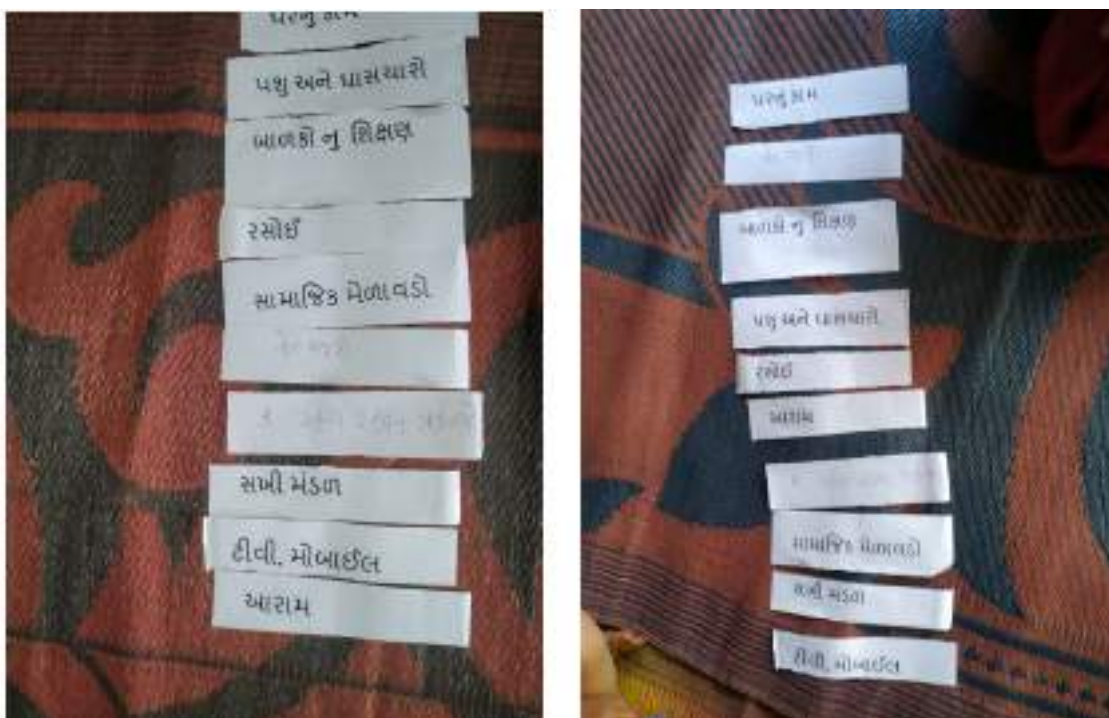 ઘરનું કામ
પશુ અને ઘાસચારો
બાળકો નુ શિક્ષણ
રસોઈ
સામાજિક મેળાવડો
સખી મંડળ
ટીવી. મોબાઈલ
આરામ
ઘરનું કામ
બાળકો નુ શિક્ષણ
પશુ અને ઘાસચારો
રસોઈ
આરામ
સામાજિક મેળાવડો
સખી મંડળ
ટીવી. મોબાઈલ